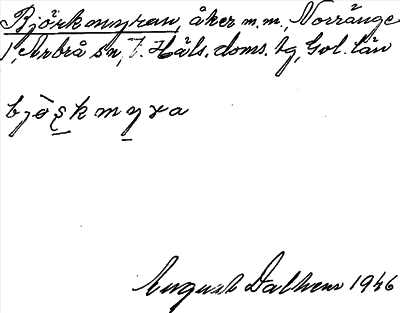 Björkmyran, åker m.m., Norränge
1, Arbrå sn, V. Häls. doms. tg, Gvl. län
bjö̀ʂkmyra
August Dalhem 1946